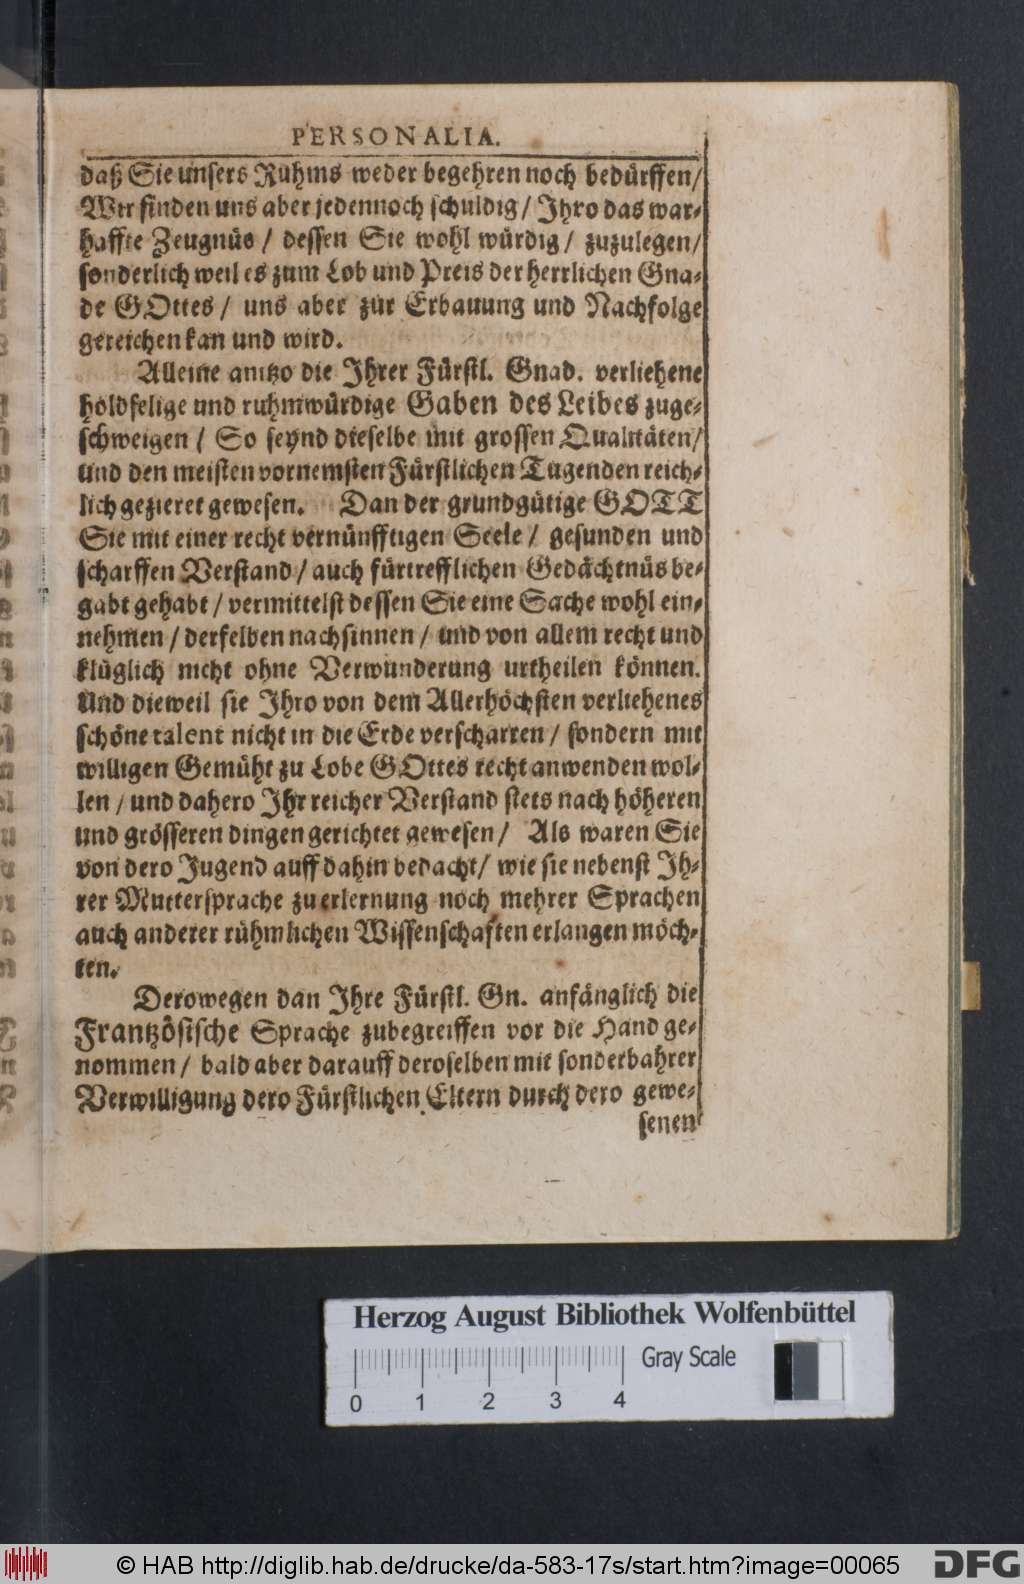 PERSONALIA.
daß Sie unsers Ruhms weder begehren noch bedürffen/
Wir finden uns aber jedennoch schuldig/ Ihro das war-
haffte Zeugnüs/ dessen Sie wohl würdig/ zuzulegen/
sonderlich weil es zum Lob und Preis der herrlichen Gna-
de GOttes/ uns aber zur Erbauung und Nachfolge
gereichen kan und wird.
Alleine anitzo die Ihrer Fürstl. Gnad. verliehene
holdselige und ruhmwürdige Gaben des Leibes zuge-
schweigen/ So seynd dieselbe mit grossen Qualitäten/
und den meisten vornemsten Fürstlichen Tugenden reich-
lich gezieret gewesen. Dan der grundgütige GOTT
Sie mit einer recht vernünfftigen Seele/ gesunden und
scharffen Verstand/ auch fürtrefflichen Gedächtnüs be-
gabt gehabt/ vermittelst dessen Sie eine Sache wohl ein-
nehmen/ derselben nachsinnen/ und von allem recht und
klüglich nicht ohne Verwunderung urtheilen können.
Und dieweil sie Ihro von dem Allerhöchsten verliehenes
schöne talent nicht in die Erde verscharren/ sondern mit
willigen Gemüht zu Lobe GOttes recht anwenden wol-
len/ und dahero Ihr reicher Verstand stets nach höheren
und grösseren dingen gerichtet gewesen/ Als waren Sie
von dero Jugend auff dahin bedacht/ wie sie nebenst Ih-
rer Muttersprache zu erlernung noch mehrer Sprachen
auch anderer rühmlichen Wissenschafften erlangen möch-
ten.
Derowegen dan Ihre Fürstl. Gn. anfänglich die
Frantzösische Sprache zubegreiffen vor die Hand ge-
nommen/ bald aber darauff deroselben mit sonderbahrer
Verwilligung dero Fürstlichen Eltern durch dero gewe-
senen
Herzog August Bibliothek Wolfenbüttel
Gray Scale
0 1 2 3 4
© HAB http://diglib.hab.de/drucke/da-583-17s/start.htm?image=00065
DFG